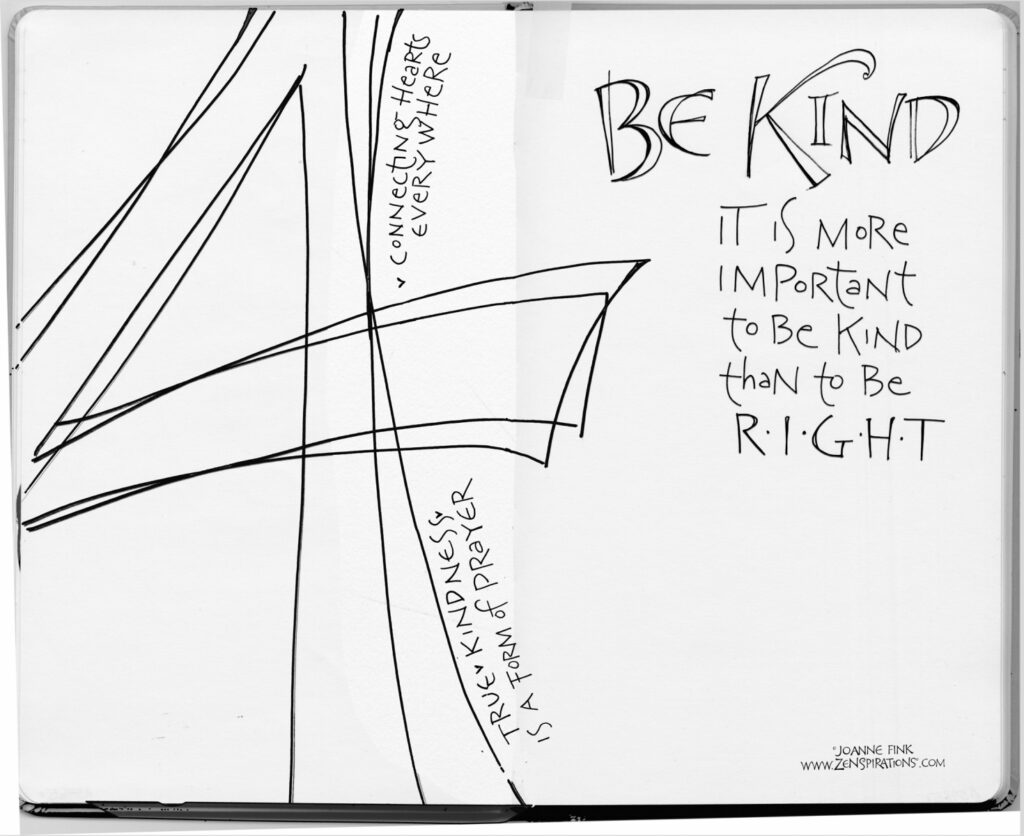 ♥ CONNECTING HEARTS
EVERYWHERE
TRUE ♥ KINDNESS ♥
IS A FORM of PRAYER
BE KIND
IT IS MORE
IMPORtaNT
to BE KIND
thaN to BE
R·I·G·H·T
©JOANNE FINK
WWW.ZENSPIRATIONS®.COM